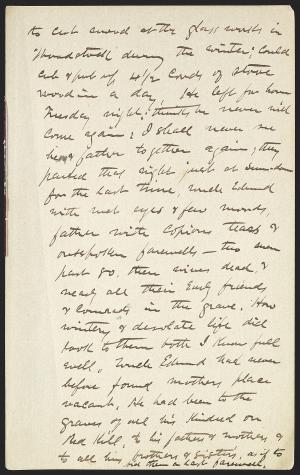 to cut wood at the glass works in
Woodstock during the winter; could
cut & put up 4 1/2 cords of stove
wood in a day. He left for home
Tuesday night; thinks he never will
come again; I shall never see
him & father together again; they
parted that night just at sundown
for the last time, Uncle Edmund
with wet eyes & few words,
father with copious tears &
outspoken farewells — two men
past 70, their wives dead, &
nearly all their early friends
& comrads in the grave. How
wintery & desolate life did
look to them both I know full
well. Uncle Edmund had never
before found mothers place
vacant. He had been to the
graves of all his kindred on
Red Hill, to his fathers & mothers &
to all his brothers & sisters, as if to
bid them a last farewell.